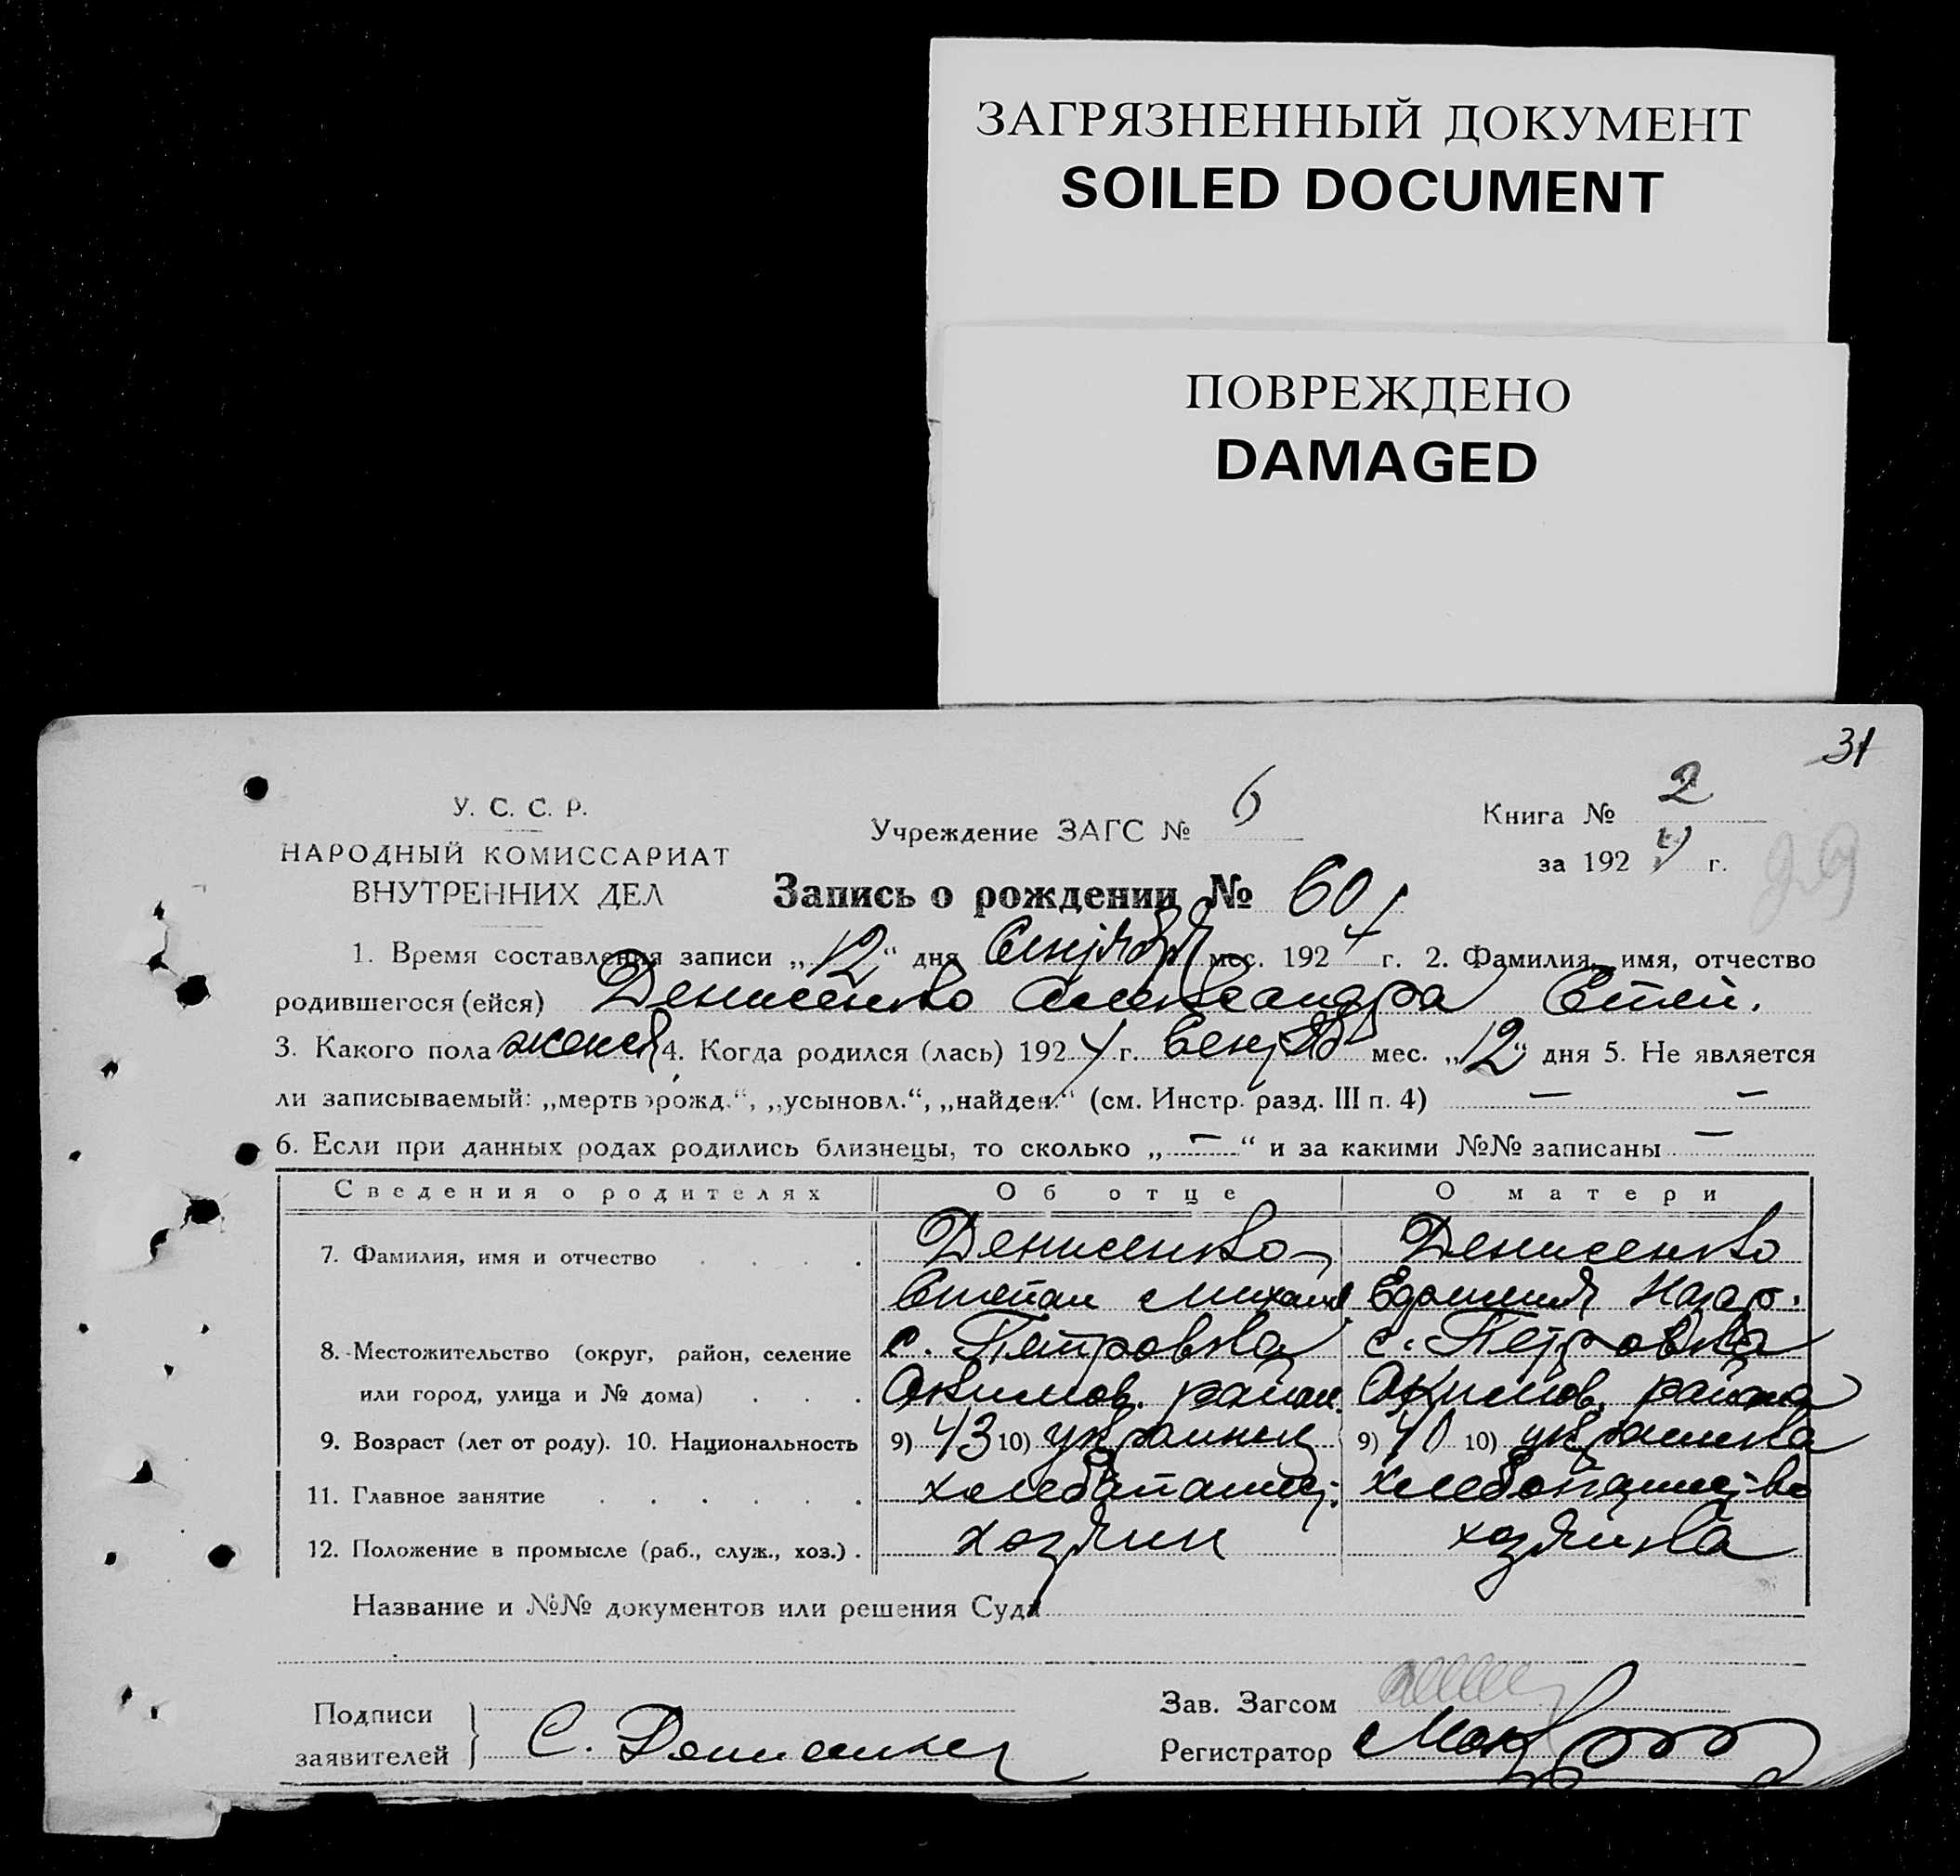 ЗАГРЯЗНЕННЫЙ ДОКУМЕНТ
SOILED DOCUMENT
ПОВРЕЖДЕНО
DAMAGED
31
У. С. С. Р.
НАРОДНЫЙ КОМИССАРИАТ
ВНУТРЕННИХ ДЕЛ
Учреждение ЗАГС № 6
Книга № 2
за 1924 г.
29
Запись о рождении № 60
1. Время составления записи „12“ дня Сентября мес. 1924 г. 2. Фамилия, имя, отчество
родившегося (ейся) Денисенко Александра Степ.
3. Какого пола женск 4. Когда родился (лась) 1924 г. Сентяб мес. „12“ дня 5. Не является
ли записываемый: „мертворожд.“, „усыновл.“, „найден.“ (см. Инстр. разд. III п. 4) — —
6. Если при данных родах родились близнецы, то сколько „—“ и за какими №№ записаны —
Сведения о родителях Об отце О матери
7. Фамилия, имя и отчество . . . . Денисенко Денисенко
Степан Михаил Назар.
8. Местожительство (округ, район, селение с. Петровка с. Петровка
или город, улица и № дома) . . . Акимов. район. Акимов. района
9. Возраст (лет от роду). 10. Национальность 9) 43 10) украинец 9) 40 10) украинка
11. Главное занятие . . . . . . хлебопашец. хлебопашество
12. Положение в промысле (раб., служ., хоз.) . хозяин хозяйка
Название и №№ документов или решения Суда
Подписи
заявителей С. Денисенко
Зав. Загсом
Регистратор